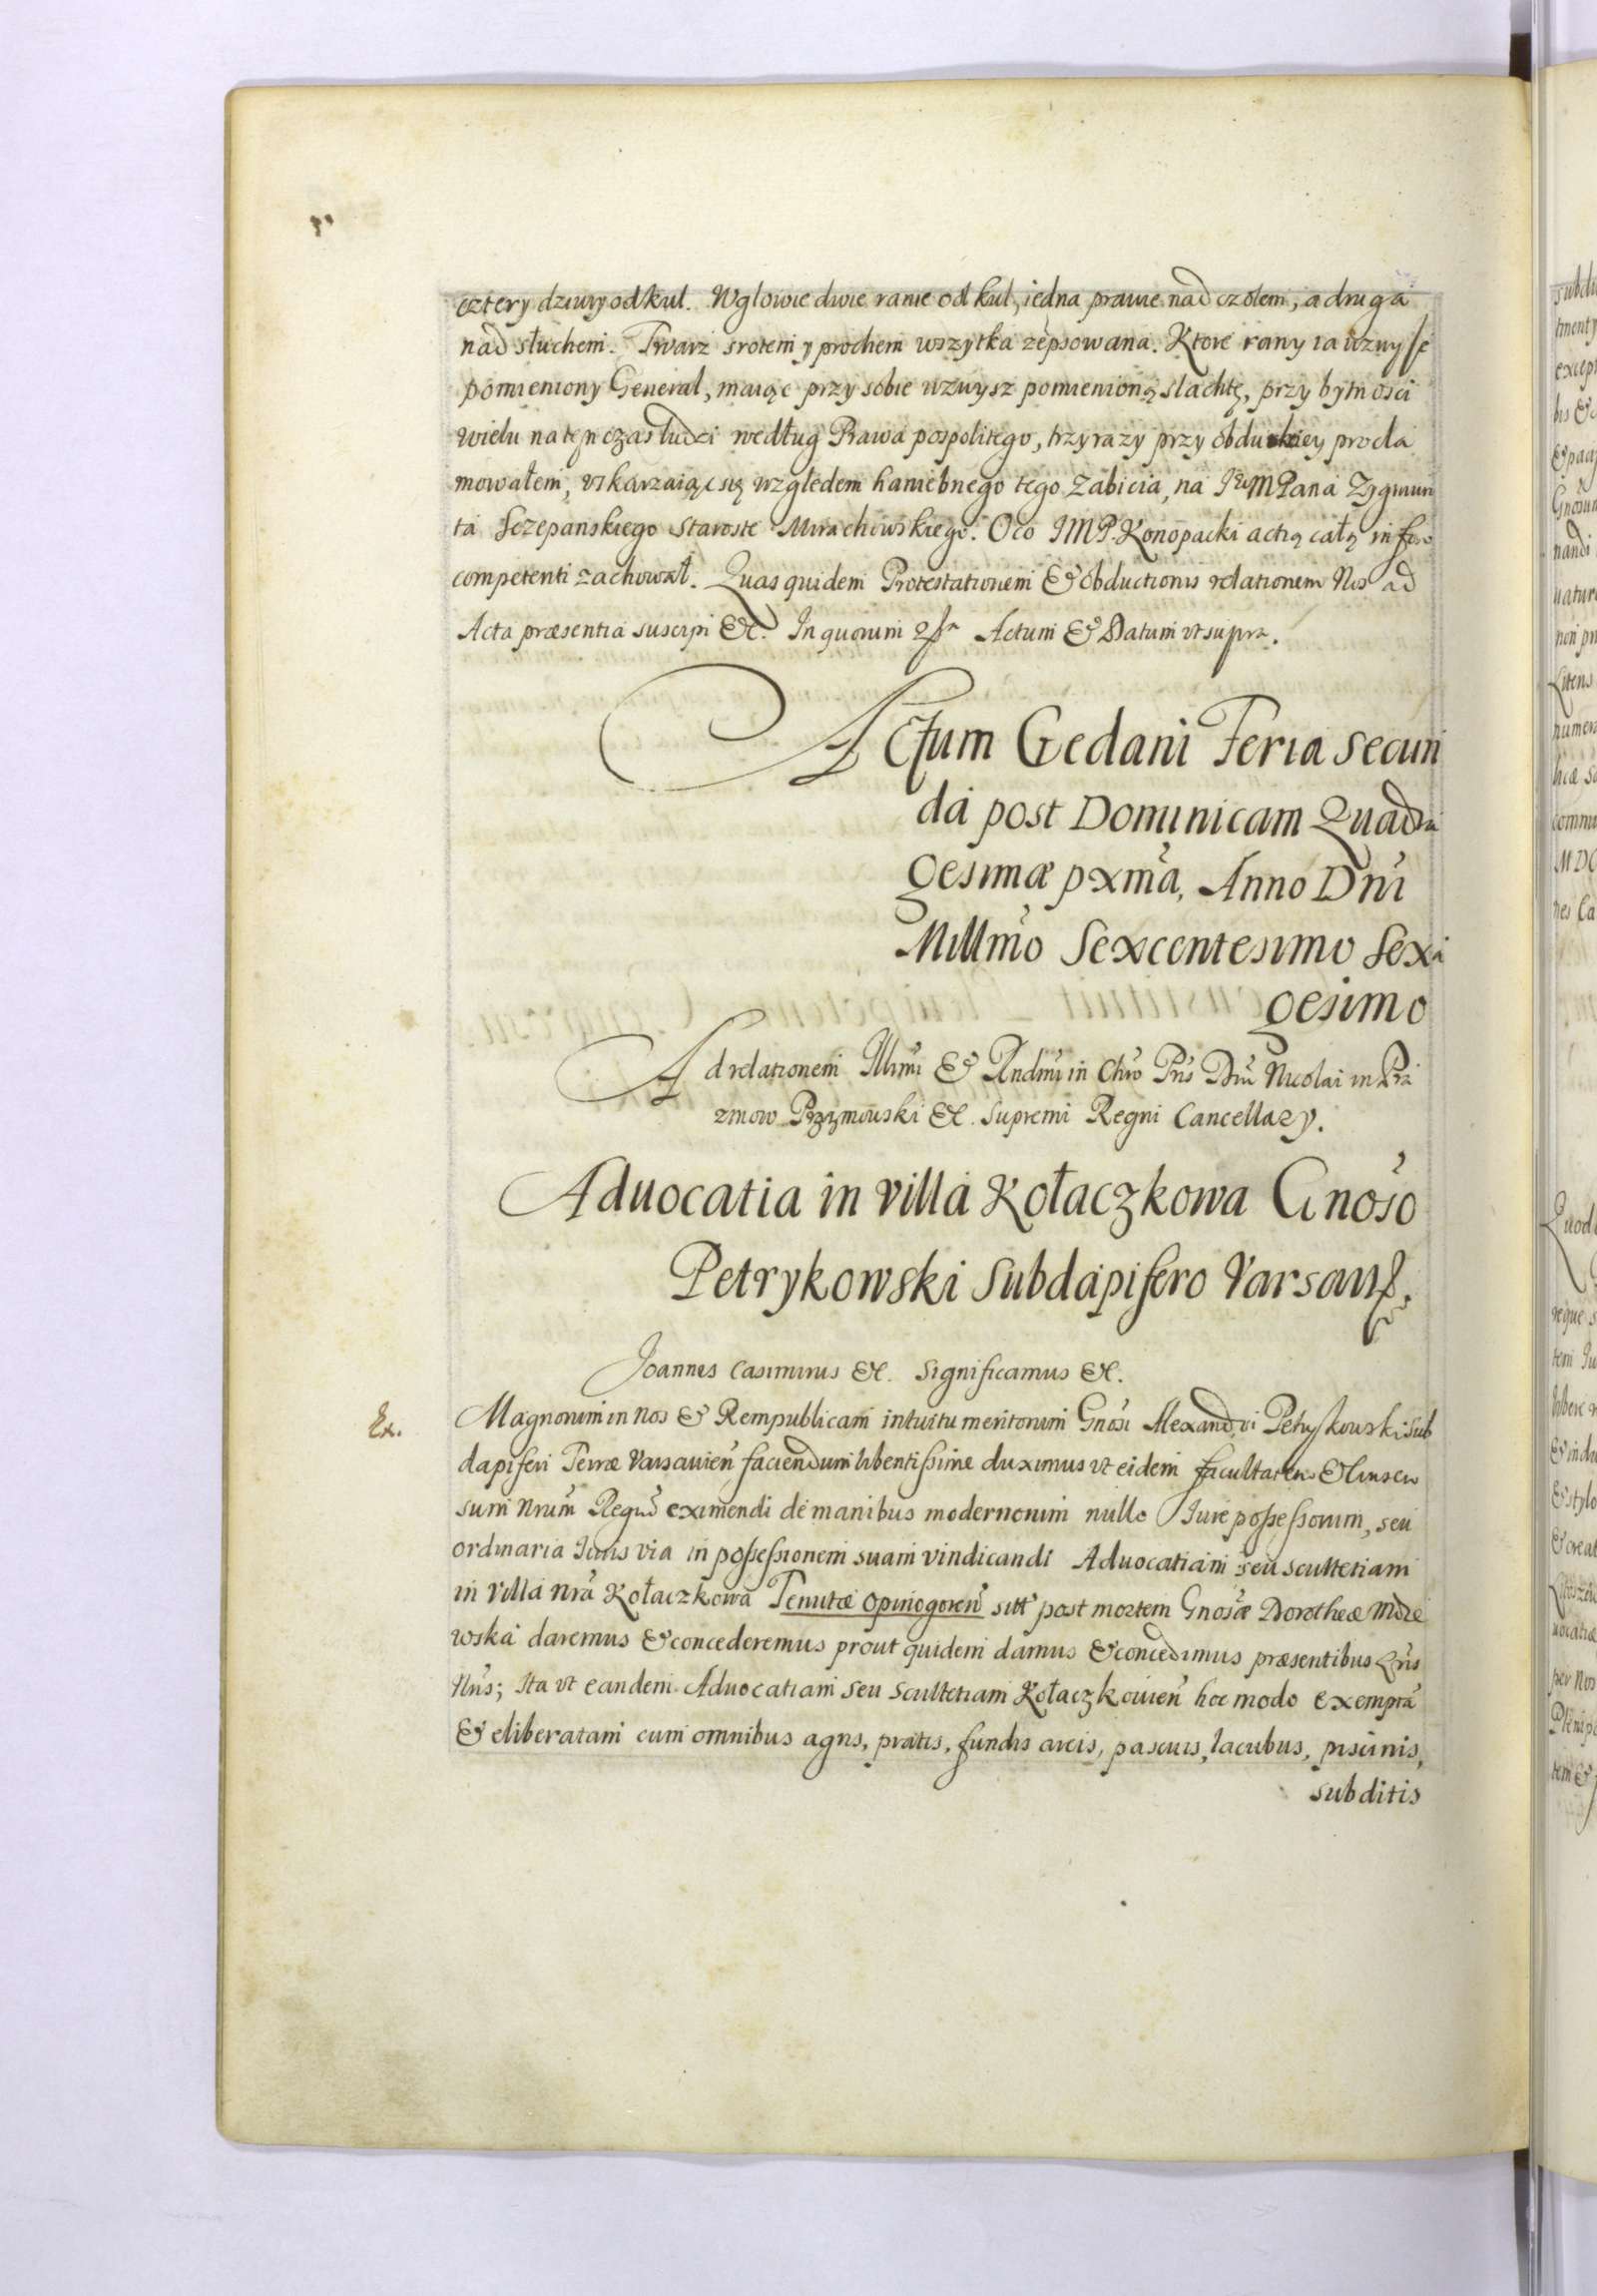 cztery dziury od kul. W glowie dwie ranie od kul, iedna prawie nad czolem, a druga
nad słuchem. Twarz srotem y prochem wszytka zepsowana. Ktore rany ia wzwysz
pomieniony General, maiąc przy sobie wzwysz pomienioną slachtę, przy bytnosci
wielu na ten czas ludzi według Prawa pospolitego, trzy razy przy obdukciey procla
mowałem, vskarzaiąc się względem haniebnego tego zabicia, na Jeo M Pana Zygmun
ta Sczepanskiego Staroste Mirachowskiego. Oco JMP. Konopacki actią całą in foro
competenti zachował. Quas quidem Protestationem & obductionis relationem Nos ad
Acta præsentia suscepi &c. In quorum Actum & Datum vt supra.
Actum Gedani Feria secun
da post Dominicam Quadra
gesimæ pxmã, Anno Dni
Millmo Sexcentesimo Sexa
gesimo
Ad relationem Illmi & Rndmi in Chro Pris Dni Nicolai in Pra
zmow Przzmowski &c. Supremi Regni Cancellary.
Aduocatia in villa Kołaczkowa Gnoso
Petrykowski Subdapifero Varsauiẽ.
Joannes Casimirus &c. Significamus &c.
Ex.
Magnorum in Nos & Rempublicam intuitu meritorum Gnosi Alexandri Petrykowski Sub
dapiferi Terræ Varsauien faciendum libentissime duximus vt eidem facultatem & consen
sum Nrum Regiũ eximendi de manibus modernorum nullo Jure possessorum, seu
ordinaria Juris via in possessionem suam vindicandi Aduocatiam seu scultetiam
in Villa Nrã Kołaczkowa Tenutæ Opinogoreñ sitã post mortem Gnosæ Dorotheæ
wska daremus & concederemus prout quidem damus & concedimus præsentibus Lris
Nris; Ita vt eandem Aduocatiam seu Scultetiam Kołaczkowien hoc modo exemptã
& eliberatam cum omnibus agris, pratis, fundis areis, pascuis, lacubus, piscinis,
subditis